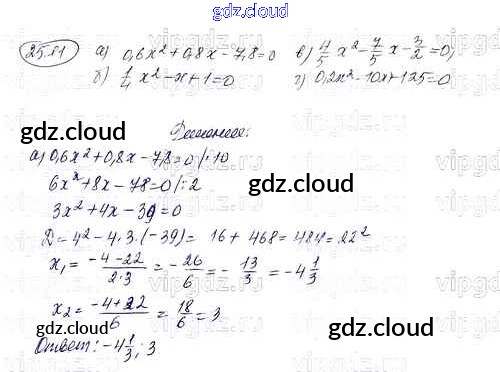 gdz.cloud
25.11 а) 0,6x² + 0,8x - 7,8 = 0 в) 4/5 x² - 7/5 x - 3/2 = 0,
б) 1/4 x² - x + 1 = 0 г) 0,2x² - 10x + 125 = 0
gdz.cloud
Решение:
а) 0,6x² + 0,8x - 7,8 = 0 |·10
6x² + 8x - 78 = 0 |:2
gdz.cloud
3x² + 4x - 39 = 0
D = 4² - 4·3·(-39) = 16 + 468 = 484 = 22²
x₁ = (-4-22)/(2·3) = -26/6 = -13/3 = -4 1/3
x₂ = (-4+22)/6 = 18/6 = 3
gdz.cloud
gdz.cloud
Ответ: -4 1/3; 3